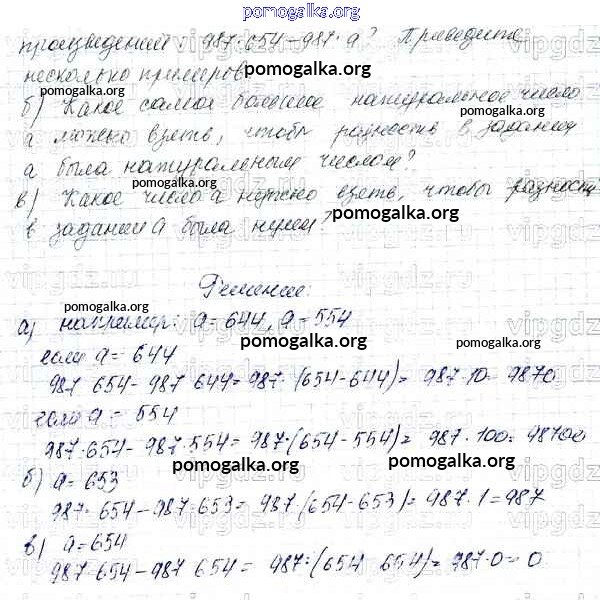 pomogalka.org
произведений 987·654-987·а? Приведите
несколько примеров.
pomogalka.org
б) Какое самое большое натуральное число
а можно взять, чтобы разность в задании
pomogalka.org
а была натуральным числом?
в) Какое число а нужно взять, чтобы разность
pomogalka.org
в задании а была нулем?
Решение:
pomogalka.org
а) например: а=644, а=554
pomogalka.org
если а= 644
987·654-987·644=987·(654-644)= 987·10=9870
pomogalka.org
если а= 554
987·654-987·554=987·(654-554)= 987·100=98700
pomogalka.org
б) а=653
987·654-987·653= 987·(654-653)=987·1=987
в) а=654
pomogalka.org
987·654-987·654= 987·(654-654)=987·0=0
pomogalka.org